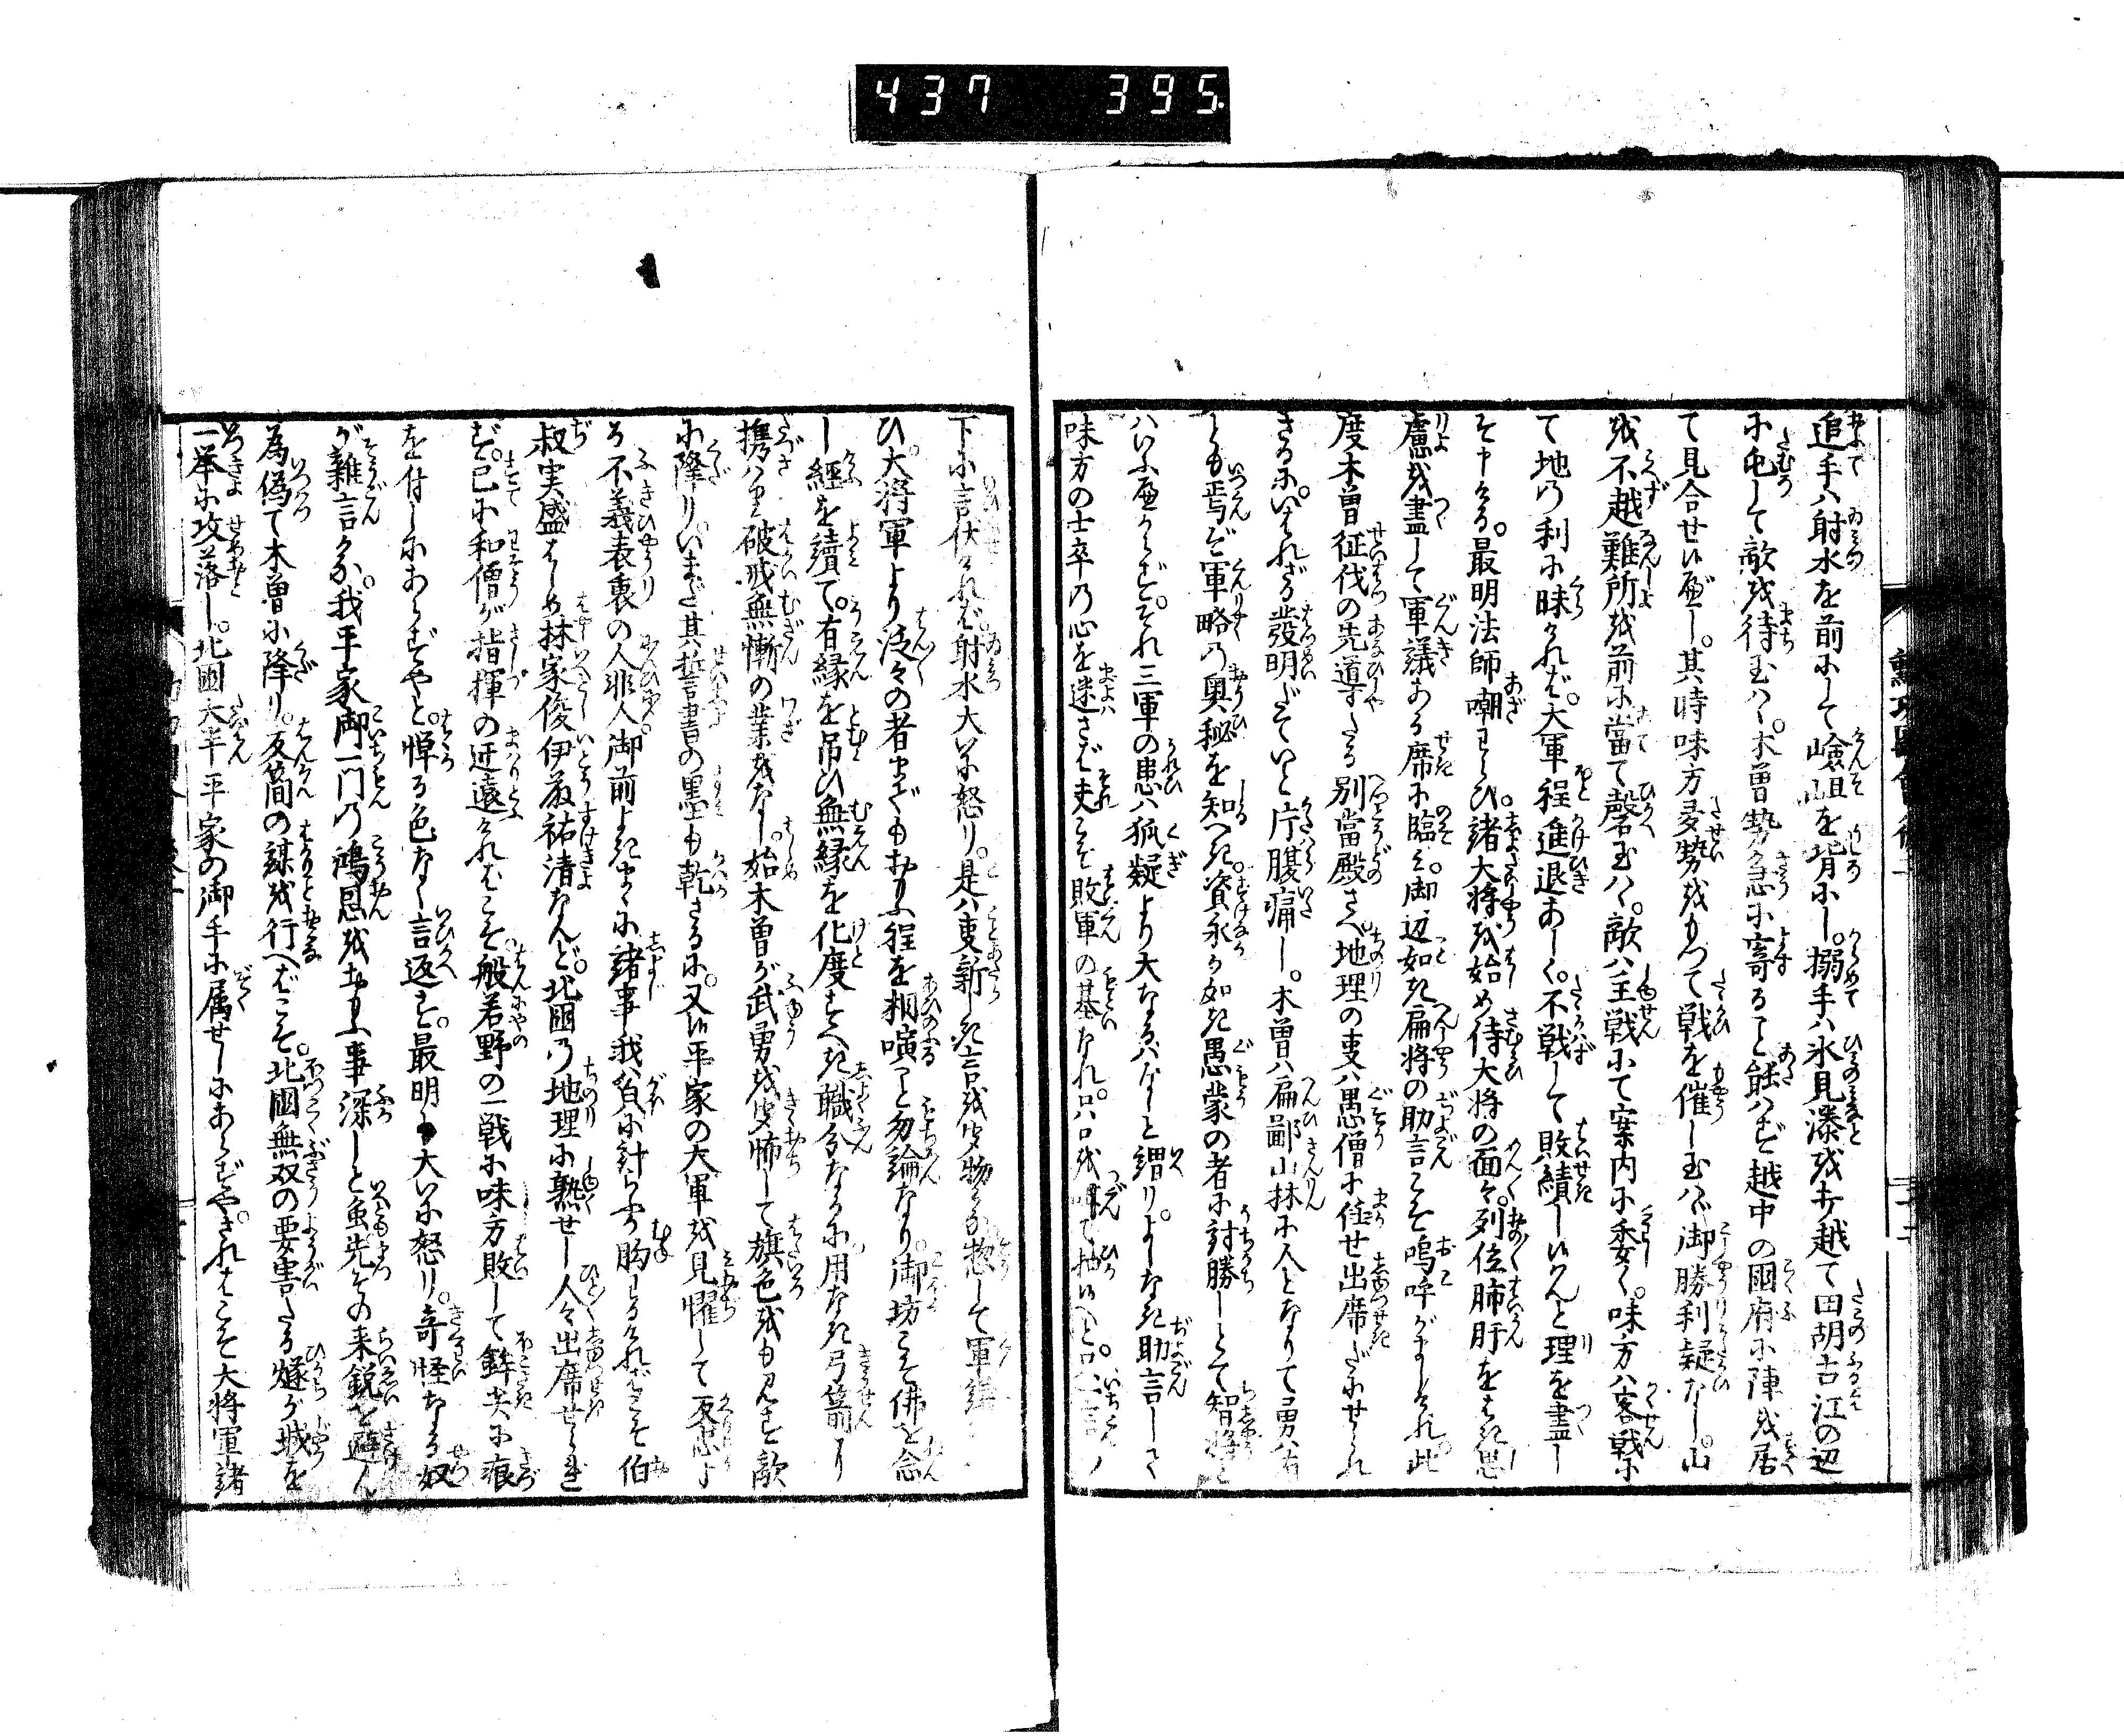 437 395.
追手ハ射水を前にして嶮岨を背にし。搦手ハ氷見湊を打越て田胡古江の辺
に屯して敵を待玉ハヾ。木曽勢急に寄ること能ハず越中の国府に陣を居
て見合せ候べし。其時味方多勢をもつて戦を催し玉ハヾ御勝利疑なし。山
を不越難所を前に當て磬玉ハヾ。敵ハ主戦にて案内に委く。味方ハ客戦に
て地の利に昧けれバ。大軍程進退あしく。不戦して敗績し候ハんと理を盡し
そ申ける。最明法師嘲わらひ。諸大将を始め侍大将の面々。列位肺肝をはき思
慮を盡して軍議ある席に臨み。御辺如き扁将の助言こそ嗚呼がましけれ。此
度木曽征伐の先導たる別當殿さへ。地理の事ハ愚僧に任せ出席だにせられ
ざるに。いはれざる發明だていと片腹痛し。木曽ハ扁鄙山林に人となりて勇ハ有
とも焉ぞ軍略の奥秘を知べき。資永が如き愚蒙の者に討勝しとて智将と
ハいふべからず。それ三軍の患ハ狐疑より大なるハなしと謂り。よしなき助言して
味方の士卒の心を迷さバ夫こそ敗軍の基なれ。只口を噤て抽候へと
下に言伏けれバ射水大いに怒り。是ハ事新しき言を聞物かな惣して軍議
ひ。大将軍より汎々の者までもおもふ程を相演こと勿論なり。御坊こそ佛を念
し經を續て。有縁を吊ひ無縁を化度すべき職分なるに用なき弓箭に
携ハり破戒無慚の業をなし。始木曽が武勇を聞怖して旗色をも見ず敵
に降り。いまだ其誓書の墨も乾ざるに。又候平家の大軍を見懼して反忠す
る不義表裏の人非人。御前よきまゝに諸事我負に計らふ胸わるけれバこそ伯
叔実盛はじめ林家俊伊藤祐清なんど。北国の地理に熟せし人々出席せられ
ず。已に和僧が指揮の迂遠けれバこそ。般若野の一戦に味方敗して鉾先に痕
を付しにあらずやと。憚る色なく言返す。最明ハ大いに怒り。奇怪なる奴
が雑言かな。我平家御一門の鴻恩をおもふ事深しと雖先その来鋭を避ん
為偽て木曽に降り。反簡の謀を行へバこそ。北国無双の要害たる燧が城を
一挙に攻落し。北国大半平家の御手に属せしにあらずや。されバこそ大将軍諸